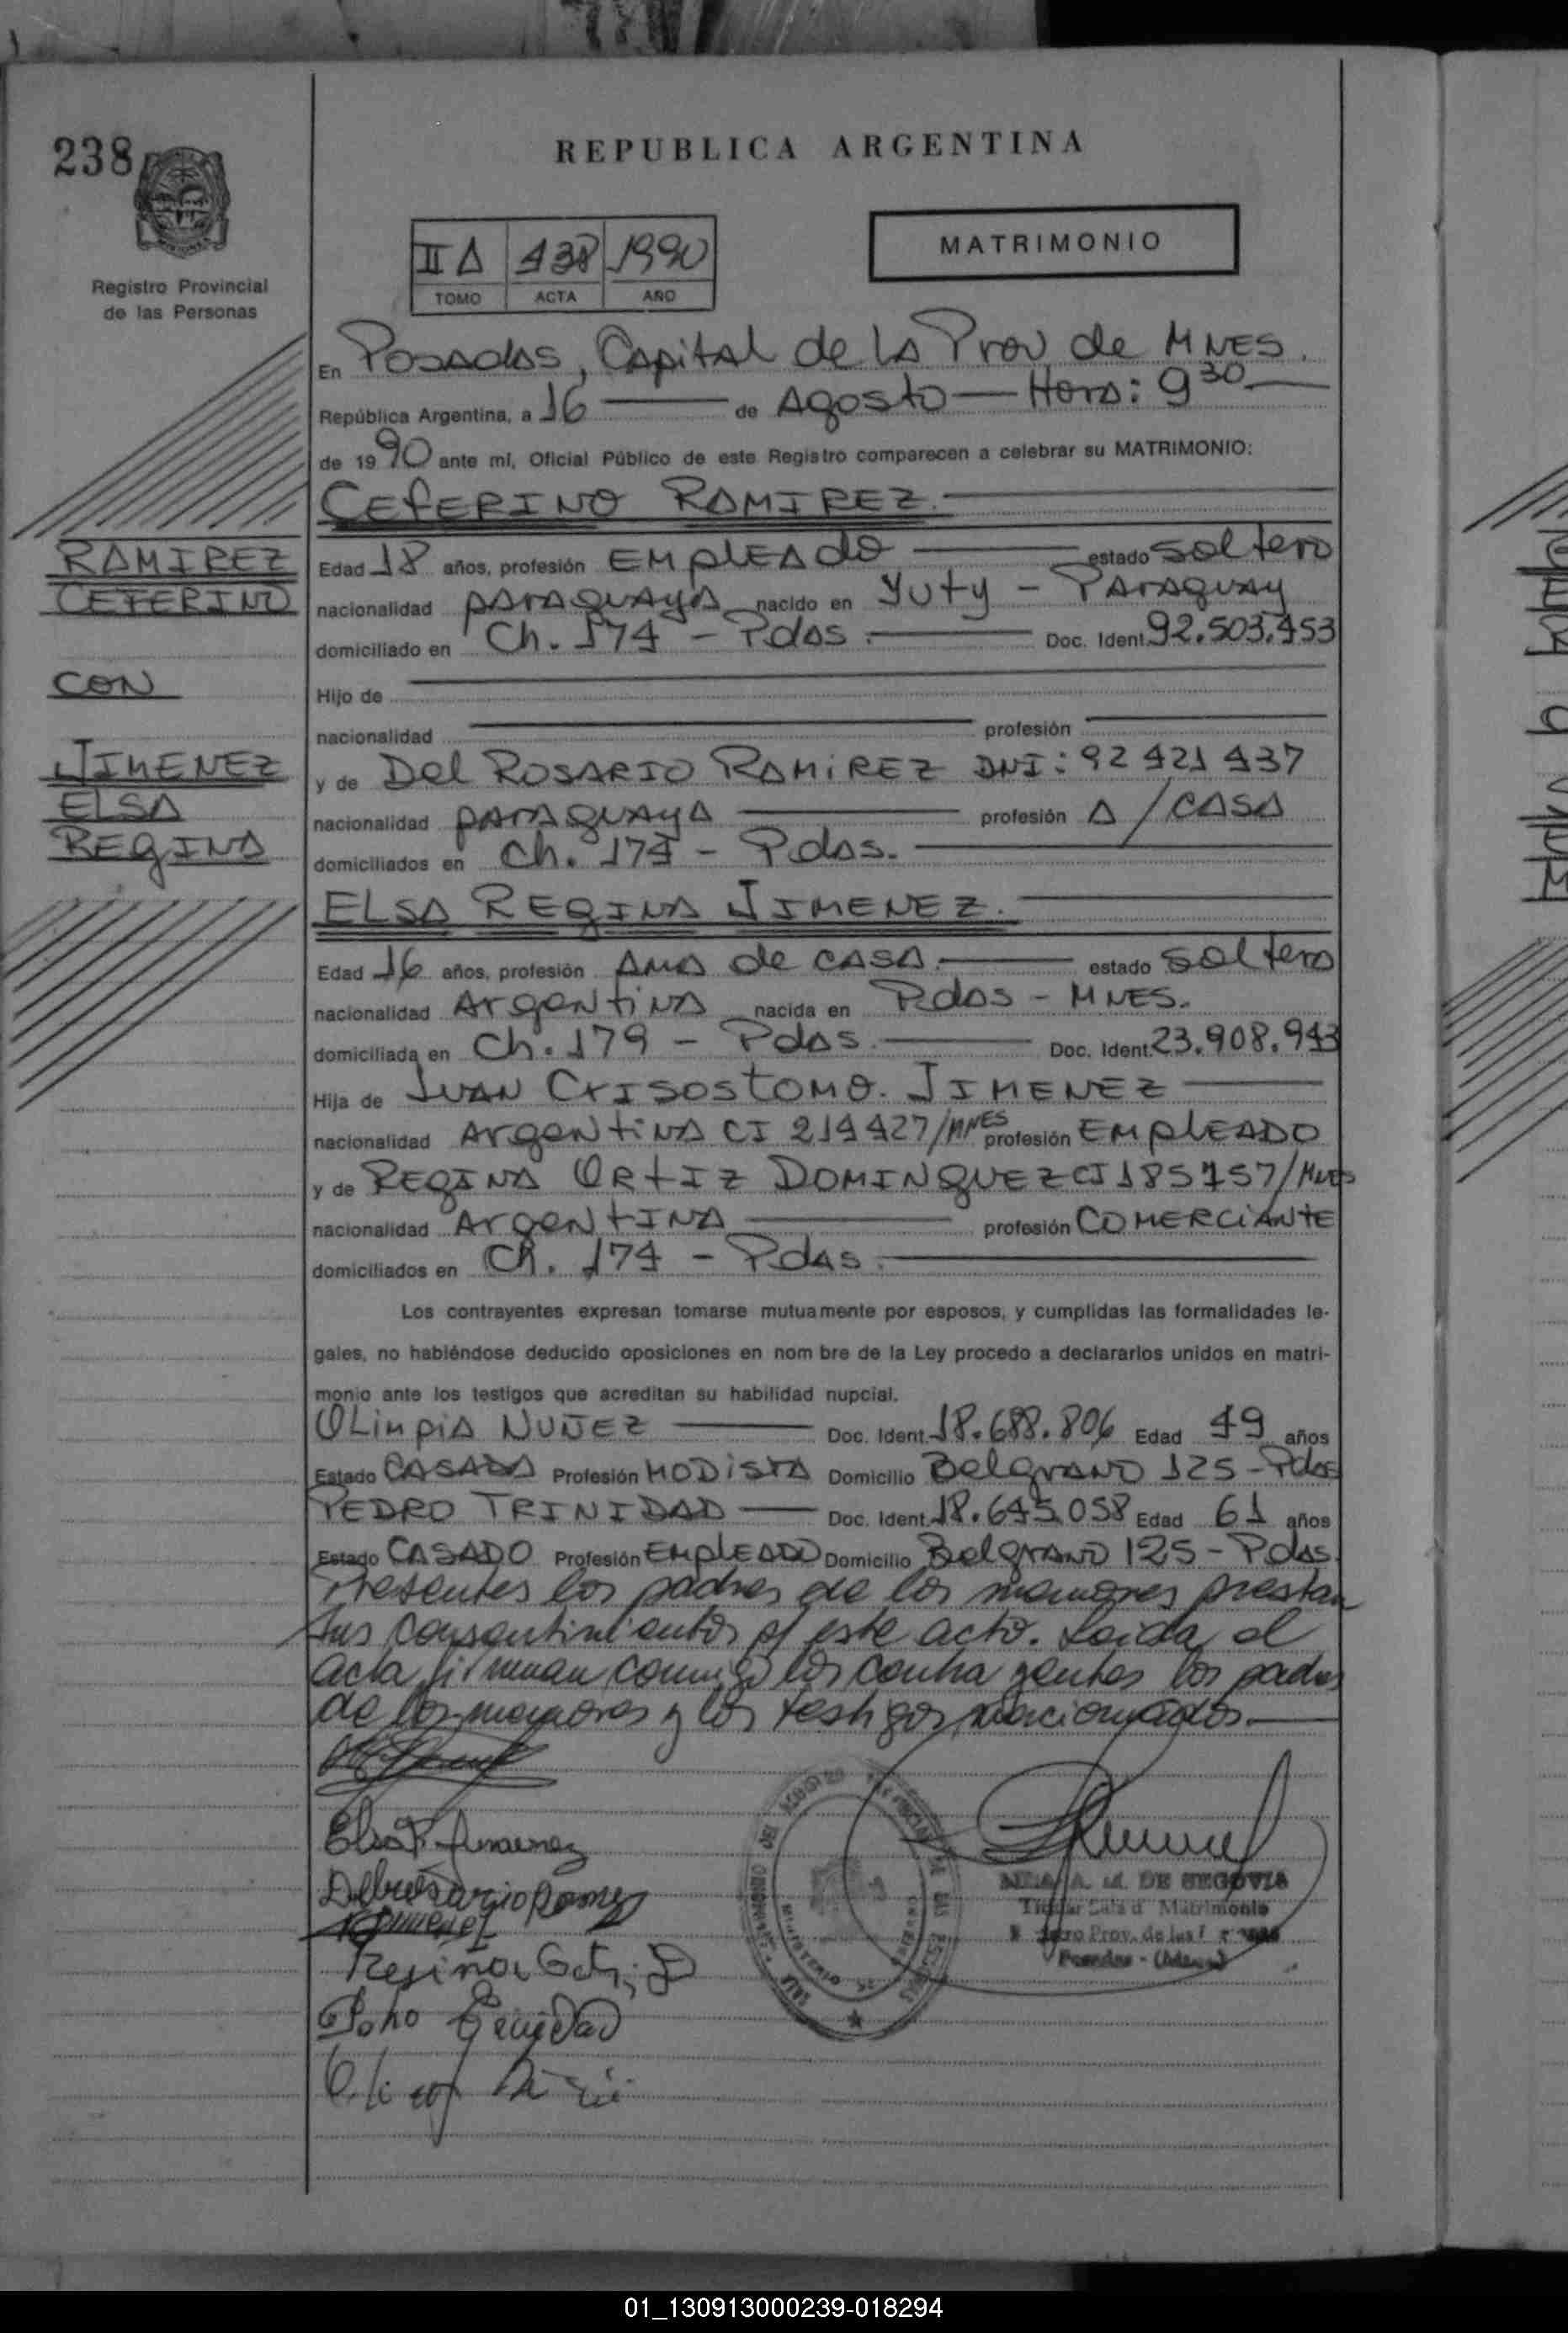 238
REPUBLICA ARGENTINA
Registro Provincial
de las Personas
II A 438 1990
TOMO ACTA AÑO
MATRIMONIO
En Posadas, Capital de la Prov de Mnes.
República Argentina, a 16 de Agosto Hora: 9 30
de 19 90 ante mí, Oficial Público de este Registro comparecen a celebrar su MATRIMONIO:
CEFERINO RAMIREZ.
RAMIREZ
CEFERINO
CON
JIMENEZ
ELSA
REGINA
Edad 18 años, profesión EMPLEADO estado soltero
nacionalidad paraguaya nacido en Yuty - Paraguay
domiciliado en Ch. 174 - Pdas. Doc. Ident. 92.503.453
Hijo de
nacionalidad profesión
y de Del ROSARIO RAMIREZ DNI: 92 421 437
nacionalidad paraguaya profesión A/CASA
domiciliados en Ch. 174 - Pdas.
ELSA REGINA JIMENEZ.
Edad 16 años, profesión Ama de CASA. estado soltera
nacionalidad Argentina nacida en Pdas - MNES.
domiciliada en Ch. 179 - Pdas. Doc. Ident. 23.908.943
Hija de JUAN CRISOSTOMO. JIMENEZ
nacionalidad Argentina CI 214427/MNES profesión EMPLEADO
y de REGINA ORTIZ DOMINGUEZ CI 185757/Mnes
nacionalidad ARGENTINA profesión COMERCIANTE
domiciliados en Ch. 174 - Pdas.
Los contrayentes expresan tomarse mutuamente por esposos, y cumplidas las formalidades le-
gales, no habiéndose deducido oposiciones en nom bre de la Ley procedo a declararlos unidos en matri-
monio ante los testigos que acreditan su habilidad nupcial.
OLimpia NUÑEZ Doc. Ident. 18.688.806 Edad 49 años
Estado CASADA Profesión MODISTA Domicilio Belgrano 125 - Pdas
PEDRO TRINIDAD Doc. Ident. 18.645.058 Edad 61 años
Estado CASADO Profesión EMPLEADO Domicilio Belgrano 125 - Pdas.
Presentes los padres de los menores prestan
sus consentimientos p/ este acto. Leida el
acta firman conmigo los contrayentes los padres
de los menores y los testigos mencionados.
Elsa R. Jimenez
A. M. DE SEGOVIA
Titular Sala d Matrimonio
Prov. de las
Posadas -
01_130913000239-018294